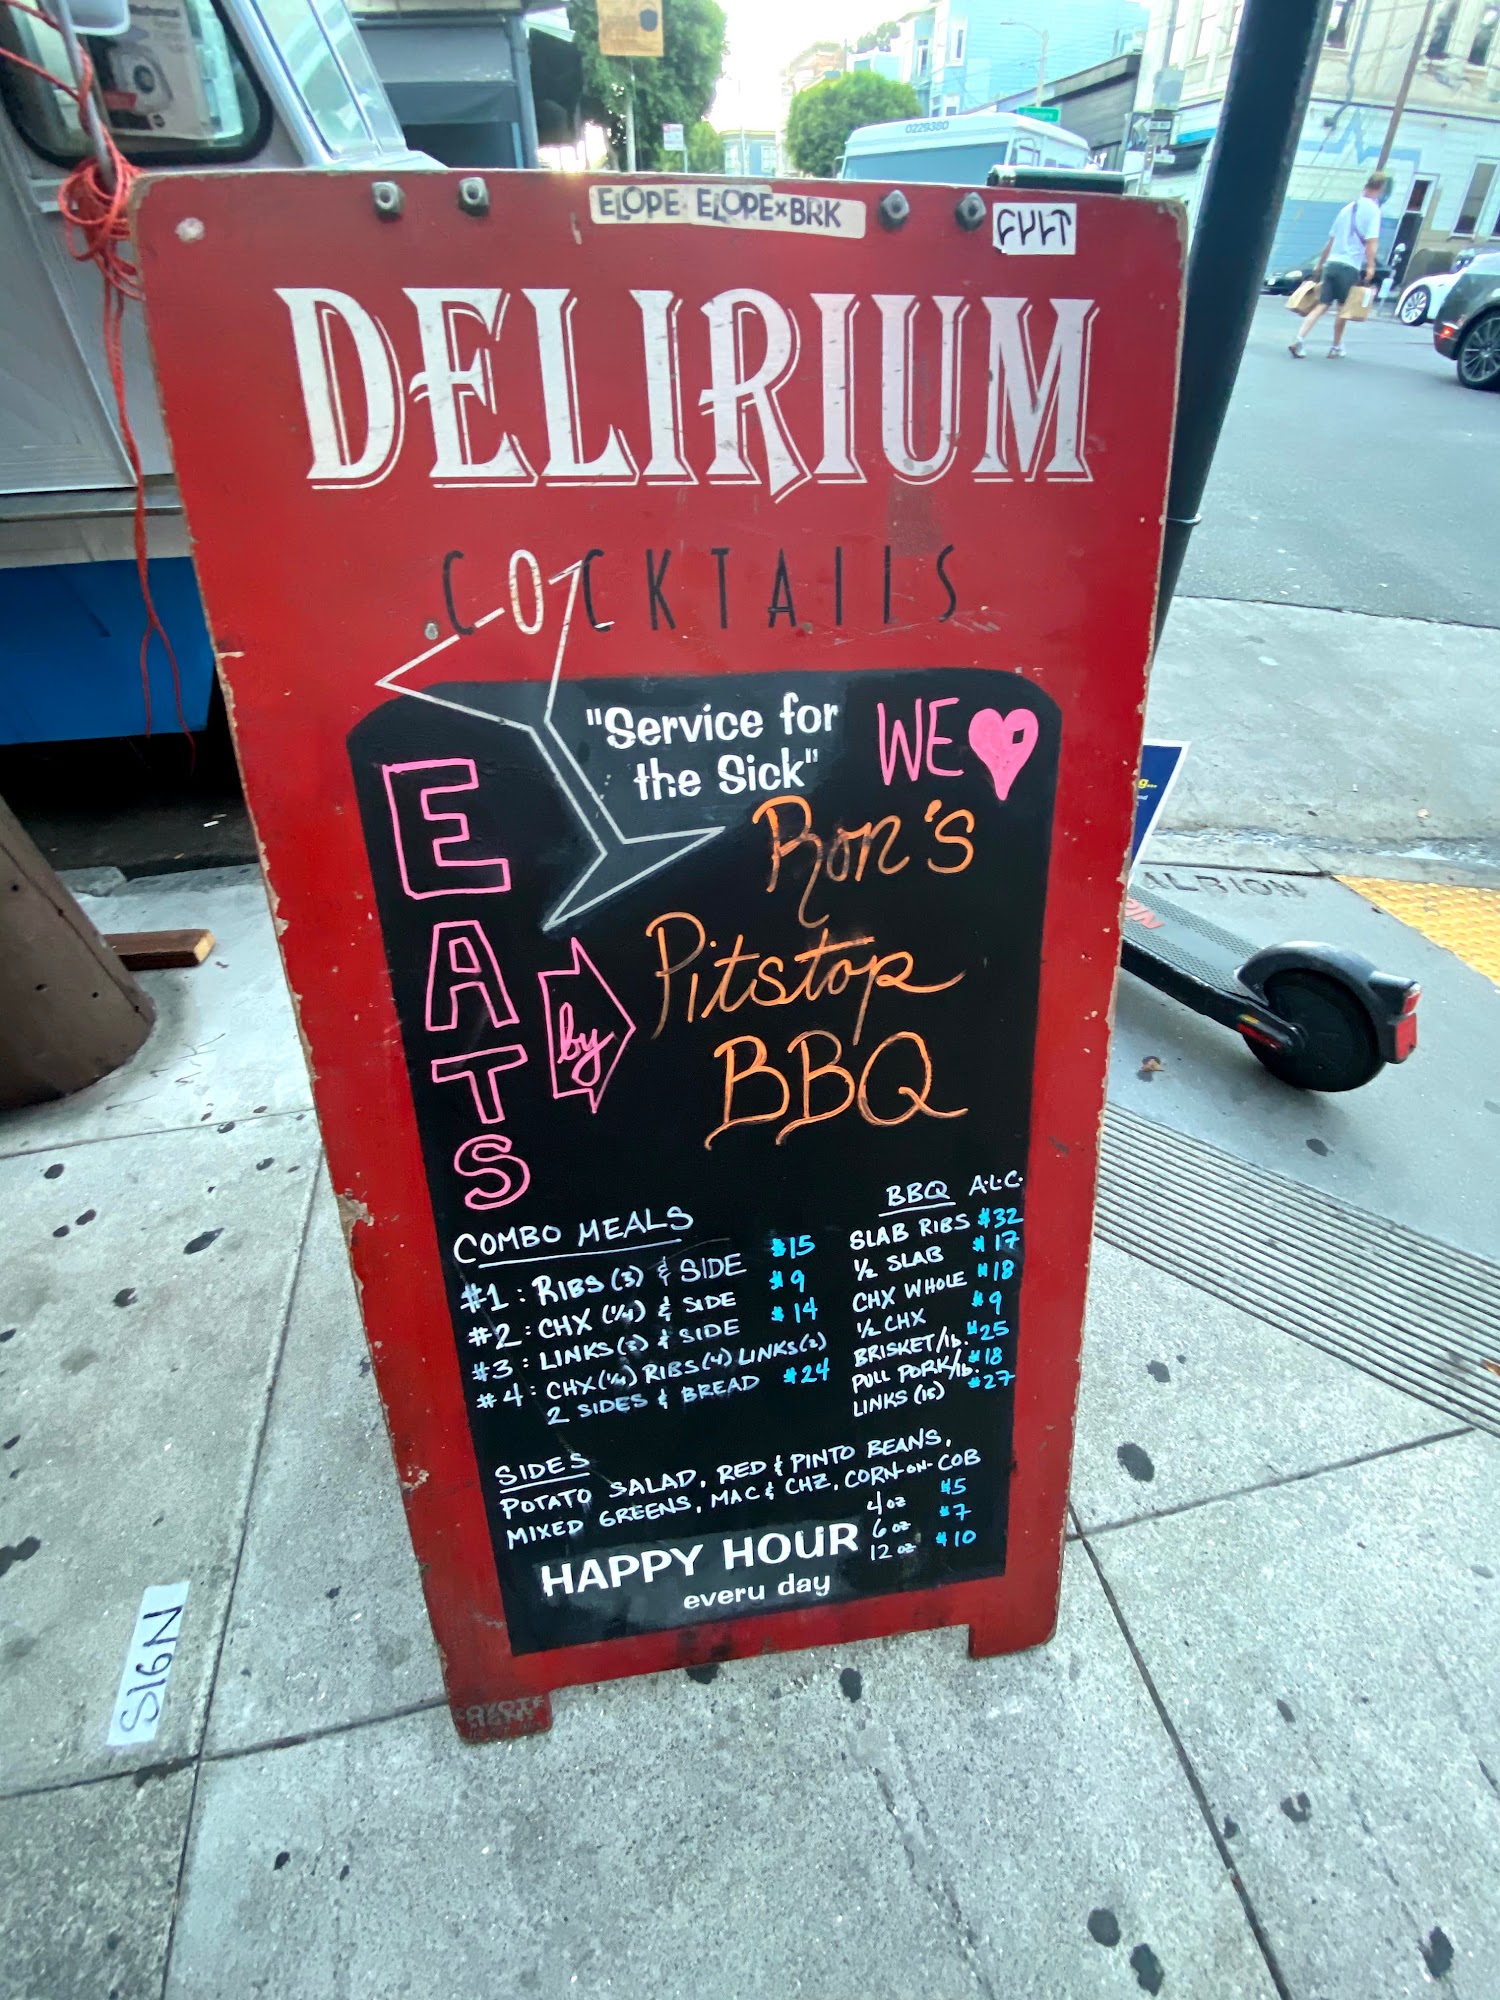 0229380
ELOPE ELOPE×BRK
CULT
DELIRIUM
COCKTAILS
"Service for
the Sick"
WE
EATS
by
Ron's
Pitstop
BBQ
COMBO MEALS
#1: RIBS (3) & SIDE $15
#2: CHX (1/4) & SIDE $9
#3: LINKS (3) & SIDE $14
#4: CHX (1/4) RIBS (4) LINKS (2)
2 SIDES & BREAD $24
BBQ A.L.C.
SLAB RIBS $32
1/2 SLAB $17
CHX WHOLE $18
1/2 CHX $9
BRISKET/lb. $25
PULL PORK/lb. $18
LINKS (15) $27
SIDES
POTATO SALAD, RED & PINTO BEANS,
MIXED GREENS, MAC & CHZ, CORN-ON-COB
4 oz $5
6 oz $7
12 oz $10
HAPPY HOUR
every day
SIGN
ALBION